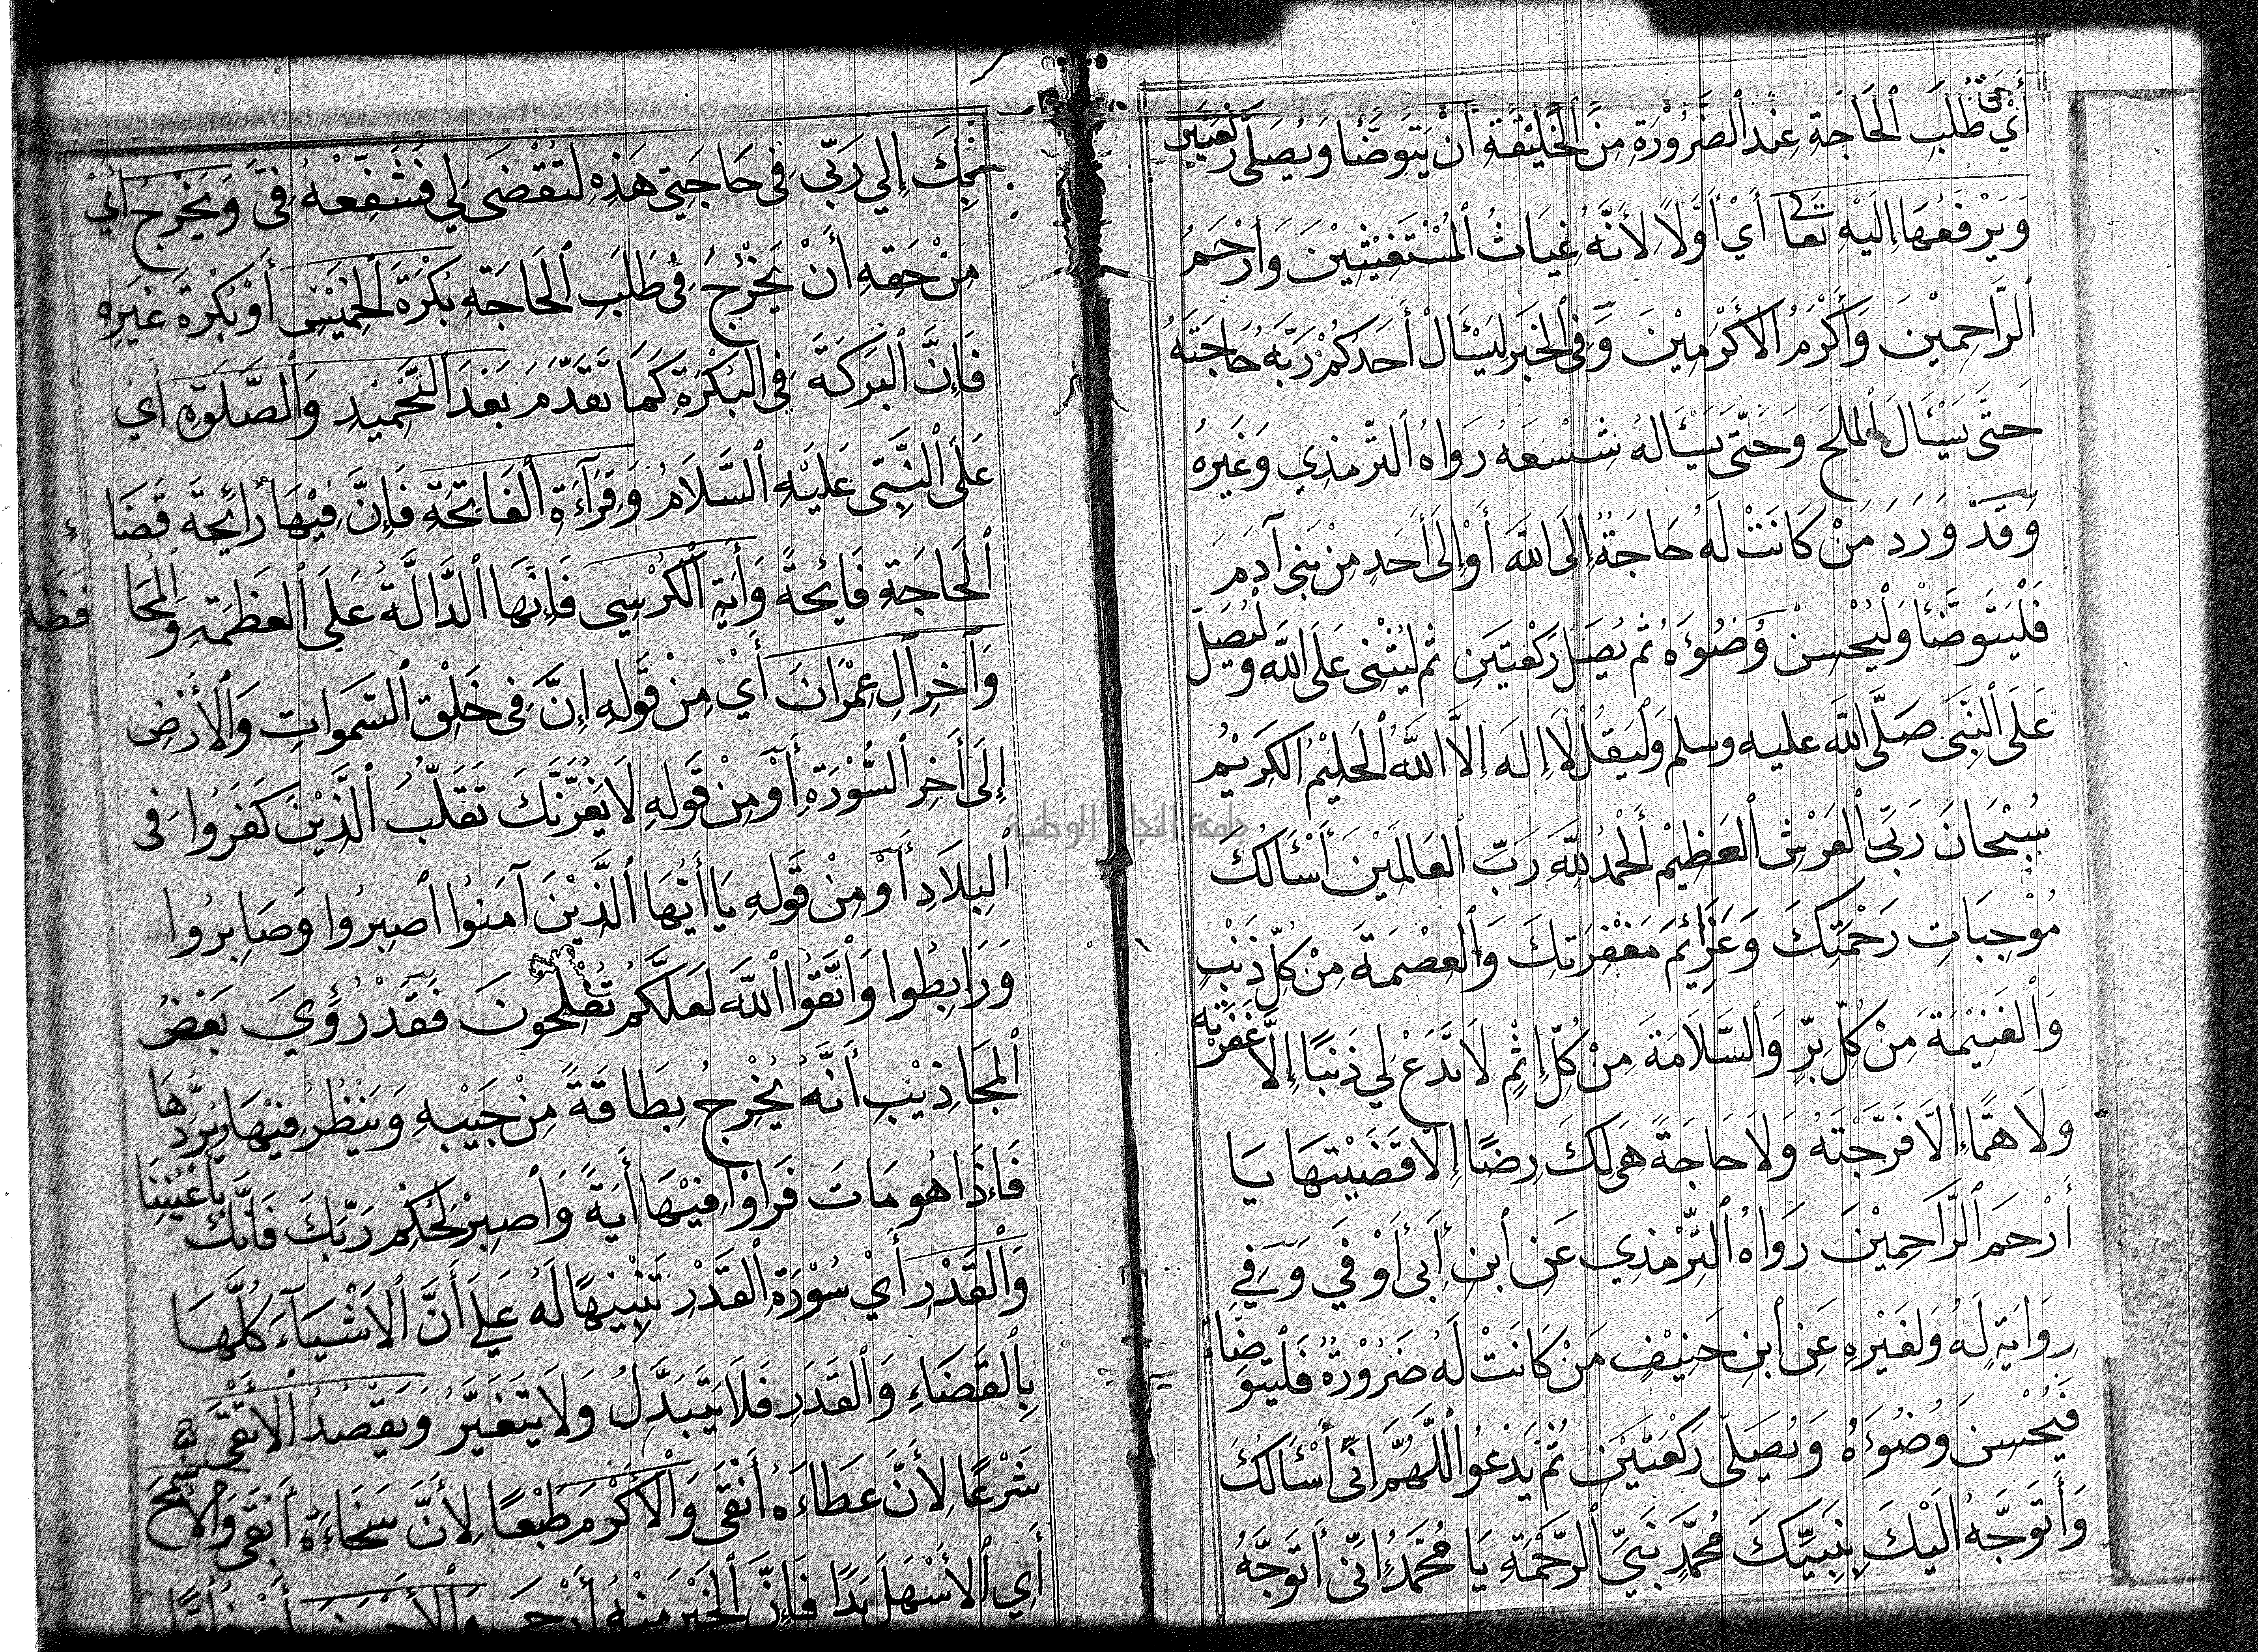 أَيْ طَلَبِ ٱلْحَاجَةِ عِنْدَ ٱلضَّرُوْرَةِ مِنَ ٱلْخَلِيْقَةِ أَنْ يَتَوَضَّأَ وَيُصَلِّى رَكْعَتَيْنِ
وَيَرْفَعُهَا إِلَيْهِ تَعَالَى أَيْ أَوَّلاً لِأَنَّهُ غِيَاثُ ٱلْمُسْتَغِيْثِيْنَ وَأَرْحَمُ
ٱلرَّاحِمِيْنَ وَأَكْرَمُ الأَكْرَمِيْنَ وَفِى ٱلْخَبَرِ لِيَسْأَلْ أَحَدُكُمْ رَبَّهُ حَاجَتَهُ
حَتَّى يَسْأَلَ ٱلْمِلْحَ وَحَتَّى يَسْأَلَهُ شِسْعَهُ رَوَاهُ ٱلتِّرْمِذِي وَغَيْرُهُ
وَقَدْ وَرَدَ مَنْ كَانَتْ لَهُ حَاجَةٌ إِلَى اللَّهِ أَوْ إِلَى أَحَدٍ مِنْ بَنِى آدَمَ
فَلْيَتَوَضَّأْ وَلْيُحْسِنْ وُضُوْءَهُ ثُمَّ يُصَلِّ رَكْعَتَيْنِ ثُمَّ لْيُثْنِى عَلَى اللَّهِ وَلْيُصَلِّ
عَلَى ٱلنَّبِى صَلَّى اللَّهُ عليه وسلم وَلْيَقُلْ لاَ إِلَهَ إِلاَّ اللَّهُ ٱلْحَلِيْمُ الكَرِيْمُ
سُبْحَانَ رَبِّ ٱلْعَرْشِ ٱلْعَظِيْمِ ٱلْحَمْدُ لِلَّهِ رَبِّ ٱلْعَالَمَيْنَ أَسْأَلُكَ
مُوْجِبَاتِ رَحْمَتِكَ وَعَزَائِمَ مَغْفِرَتِكَ وَٱلْعِصْمَةَ مِنْ كُلِّ ذَنْبٍ
وَٱلْغَنِيْمَةَ مِنْ كُلِّ بِرٍّ وَٱلسَّلاَمَةَ مِنْ كُلِّ إِثْمٍ لاَ تَدَعْ لِي ذَنْبًا إِلاَّ غَفَرْتَهُ
وَلاَ هَمًّا إِلاَّ فَرَّجْتَهُ وَلاَ حَاجَةً هِىَ لَكَ رِضًا إِلاَّ قَضَيْتَهَا يَا
أَرْحَمَ ٱلرَّاحِمِيْنَ رَوَاهُ ٱلتِّرْمِذِي عَنِ ٱبْنِ أَبِى أَوْفِي وَفِي
رِوَايَةٍ لَهُ وَلِغَيْرِهِ عَنِ ٱبْنِ حَنِيْفٍ مَنْ كَانَتْ لَهُ ضَرُوْرَةٌ فَلْيَتَوَضَّأْ
فَيُحْسِنَ وُضُوْءَهُ وَيُصَلِّى رَكْعَتَيْنِ ثُمَّ يَدْعُوا ٱللَّهُمَّ اِنِّى أَسْأَلُكَ
وَأَتَوَجَّهُ اِلَيْكَ بِنَبِيِّكَ مُحَمَّدٍ نَبِيِّ ٱلرَّحْمَةِ يَا مُحَمَّدُ إِنِّى أَتَوَجَّهُ
بِكَ إِلَي رَبِّى فِى حَاجَتِى هَذِهِ لِتُقْضَى لِي فَشَفِّعْهُ فِىَّ وَيَخْرُجُ أَيْ
مِنْ حَقِّهِ أَنْ يَخْرُجَ فِى طَلَبِ ٱلْحَاجَةِ بُكْرَةَ ٱلْخَمِيْسِ أَوْ بُكْرَةَ غَيْرِهِ
فَإِنَّ ٱلْبَرَكَةَ فِى ٱلْبُكْرَةِ كَمَا تَقَدَّمَ بَعْدَ ٱلتَّحْمِيْدِ وَٱلصَّلَوةِ أَيْ
عَلَى ٱلنَّبِّى عَلَيْهِ ٱلسَّلاَمُ وَقِرَآءَةِ ٱلْفَاتِحَةِ فَإِنَّ فِيْهَا رَائِحَةَ قَضَاءِ
ٱلْحَاجَةِ فَائِحَةً وَأَيَةِ ٱلْكُرْسِي فَإِنَّهَا ٱلدَّالَّةُ عَلَى ٱلْعَظَمَةِ وَٱلْمُحَافَظَةِ
وَآخِرِ آلِ عِمْرَانَ أَيْ مِنْ قَوْلِهِ إِنَّ فِى خَلْقِ ٱلسَّمَوَاتِ وَٱلأَرْضِ
إِلَى أَخِرِ ٱلسُّوْرَةِ أَوْ مِنْ قَوْلِهِ لاَ يَغُرَّنَّكَ تَقَلُّبُ ٱلَّذِيْنَ كَفَرُوا فِى
ٱلْبِلاَدِ أَوْ مِنْ قَوْلِهِ يَا أَيُّهَا ٱلَّذِيْنَ آمَنُوا ٱصْبِرُوا وَصَابِرُوا
وَرَابِطُوا وَٱتَّقُوا ٱللَّهَ لَعَلَّكُمْ تُفْلِحُونَ فَقَدْ رُؤِيَ بَعْضُ
ٱلْمَجَاذِيْبِ أَنَّهُ يُخْرِجُ بِطَاقَةً مِنْ جَيْبِهِ وَيَنْظُرُ فِيْهَا وَيَرُدُّهَا
فَاِذَا هُوَ مَاتَ فَرَاَوْا فِيْهَا أَيَةً وَٱصْبِرْ لِحُكْمِ رَبِّكَ فَاِنَّكَ بِأَعْيُنِنَا
وَٱلْقَدْرِ أَيْ سُوْرَةِ ٱلْقَدْرِ تَنْبِيْهًا لَهُ عَلَي أَنَّ ٱلاَشْيَآءَ كُلَّهَا
بِٱلْقَضَاءِ وَٱلْقَدَرِ فَلاَ يَتَبَدَّلُ وَلاَ يَتَغَيَّرُ وَيَقْصُدُ ٱلأَتْقَى
شَرْعًا لِأَنَّ عَطَاءَهُ أَنْقَى وَٱلأَكْرَمَ طَبْعًا لِأَنَّ سَخَاءَهُ أَبْقَى وَٱلأَسْمَحَ
أَيِ ٱلأَسْهَلَ يَدًا فَإِنَّ ٱلْخَيْرَ مِنْهُ أَرْجَى
جامعة النجاح الوطنية